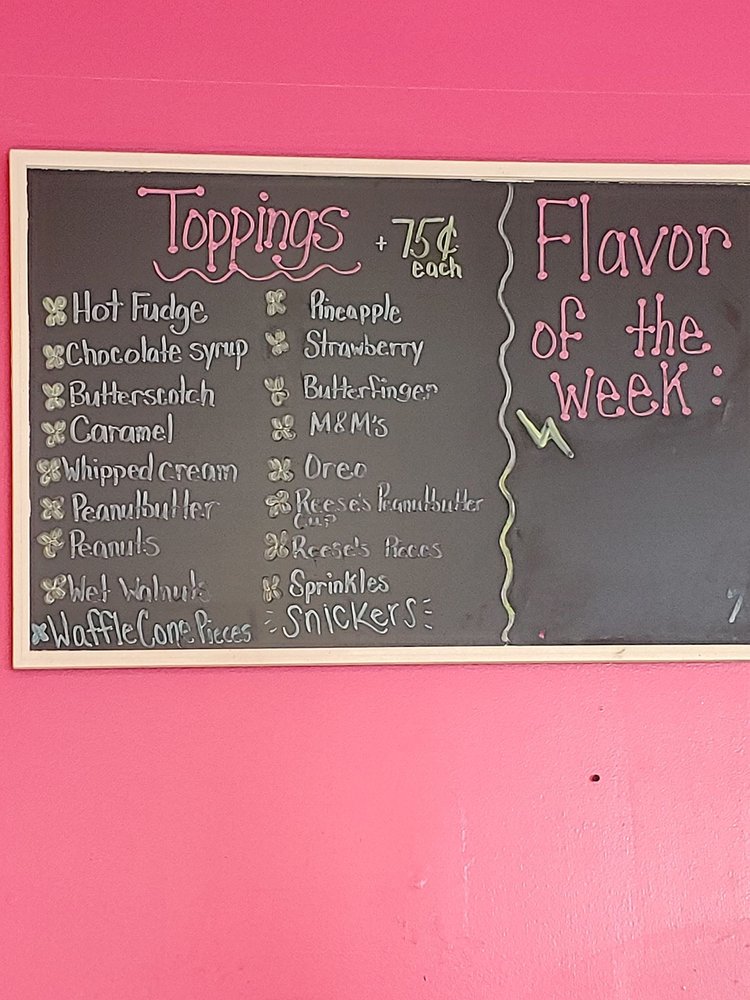 Toppings + 75¢
each
Hot Fudge
Chocolate syrup
Butterscotch
Caramel
Whipped cream
Peanutbutter
Peanuts
Wet Walnuts
Waffle Cone Pieces
Pineapple
Strawberry
Butterfinger
M&M's
Oreo
Reese's Peanutbutter
Cup
Reese's Pieces
Sprinkles
Snickers
Flavor
of the
week: